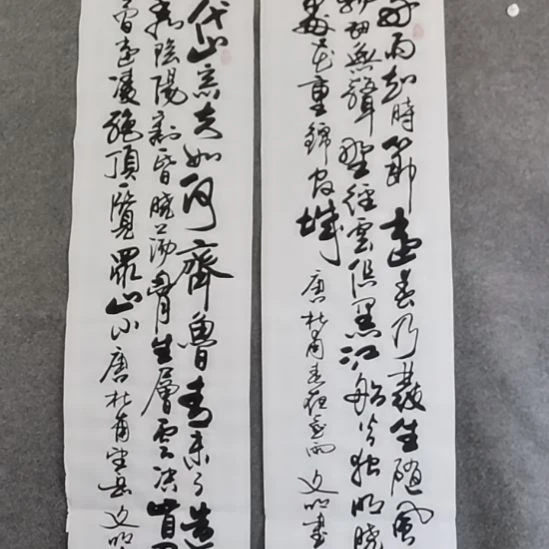 好雨知時節當春乃發生隨風
物細無聲野徑雲俱黑江船火獨明曉
處花重錦官城 唐杜甫春夜喜雨 文明書
岱宗夫如何齊魯青未了造
秀陰陽割昏曉蕩胸生層雲決眥
會當凌絕頂一覽眾山小 唐杜甫望岳 文明